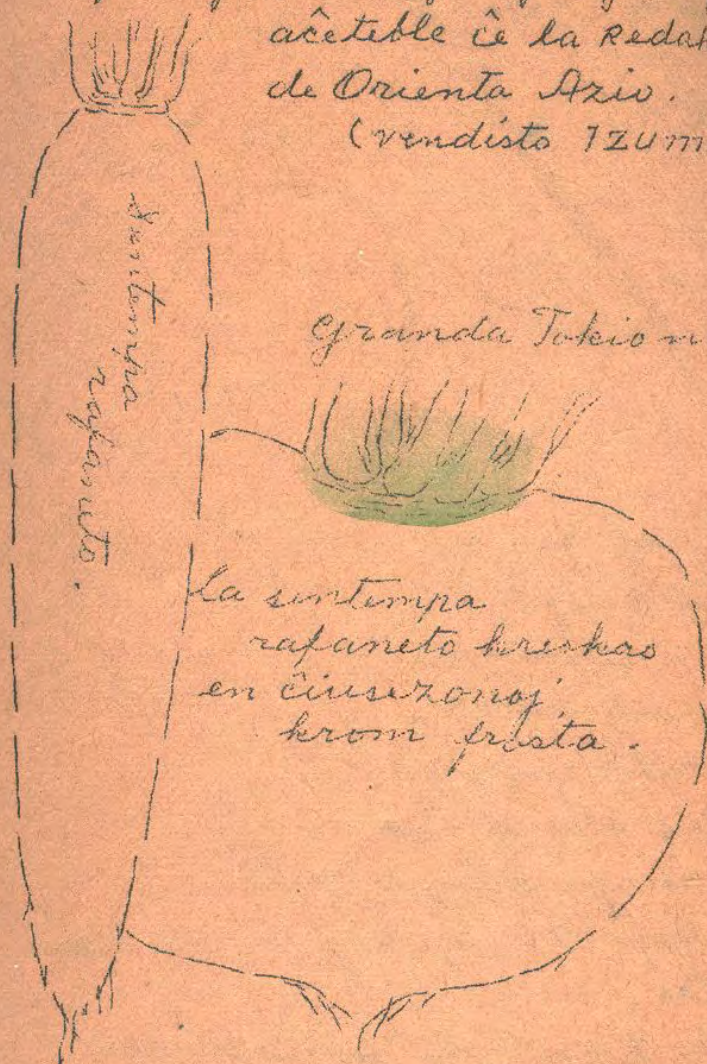 aĉeteble ĉe la Redak
de Orienta Azio.
(vendisto IZUM
Suntempa
rafaneto.
Granda Tokio n
la suntempa
rafaneto kreskas
en ĉiusezonoj,
krom frosta.